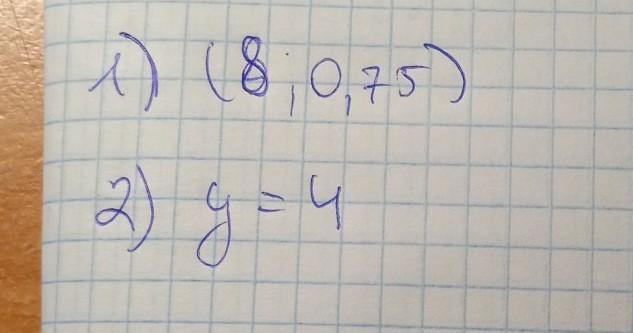 1) (8; 0,75)
2) y = 4